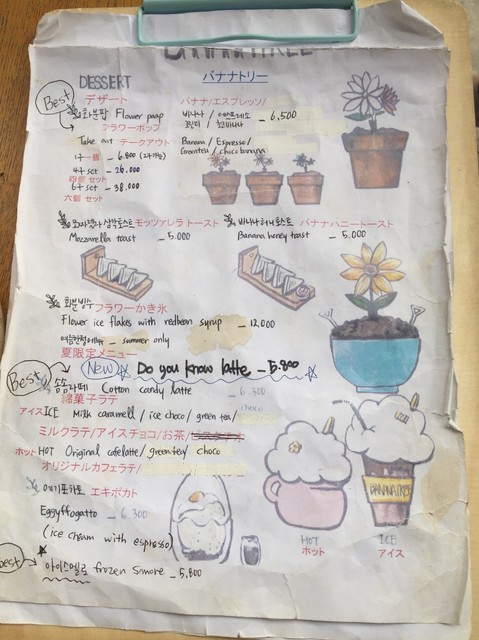 BANANATREE
DESSERT
バナナトリー
Best
デザート
화분팝 Flower paap
フラワーポップ
Take out テークアウト
1개 個 - 6.800
4개 set - 26.000
四個 セット
6개 set - 38.000
六個 セット
バナナ/エスプレッソ/
바나나 / 에스프레소
그린티 / 초코바나나
- 6,500
Banana / Espresso/
Greentea / choco banana
모짜렐라 생각토스트 モッツァレラ トースト
Mozzarella toast - 5.000
바나나 허니토스트 バナナハニートースト
Banana honey toast - 5.000
화분빙수 フラワーかき氷
Flower ice flakes with redbean syrup - 12,000
summer only
夏限定メニュー
New Do you know latte - 5.800
Best
솜사탕라떼 Cotton candy latte - 6.300
綿菓子ラテ
アイス ICE Milk caramell / ice choco / green tea / choco
ミルクラテ/アイスチョコ/お茶/
ホット HOT Original cafelatte / green tea / choco
オリジナルカフェラテ/
에기포카토 エキポカト
Eggyffogatto - 6.300
(ice cream with espresso)
best
아이스멜로 frozen Smore - 5,800
BANANATREE
HOT
ホット
ICE
アイス